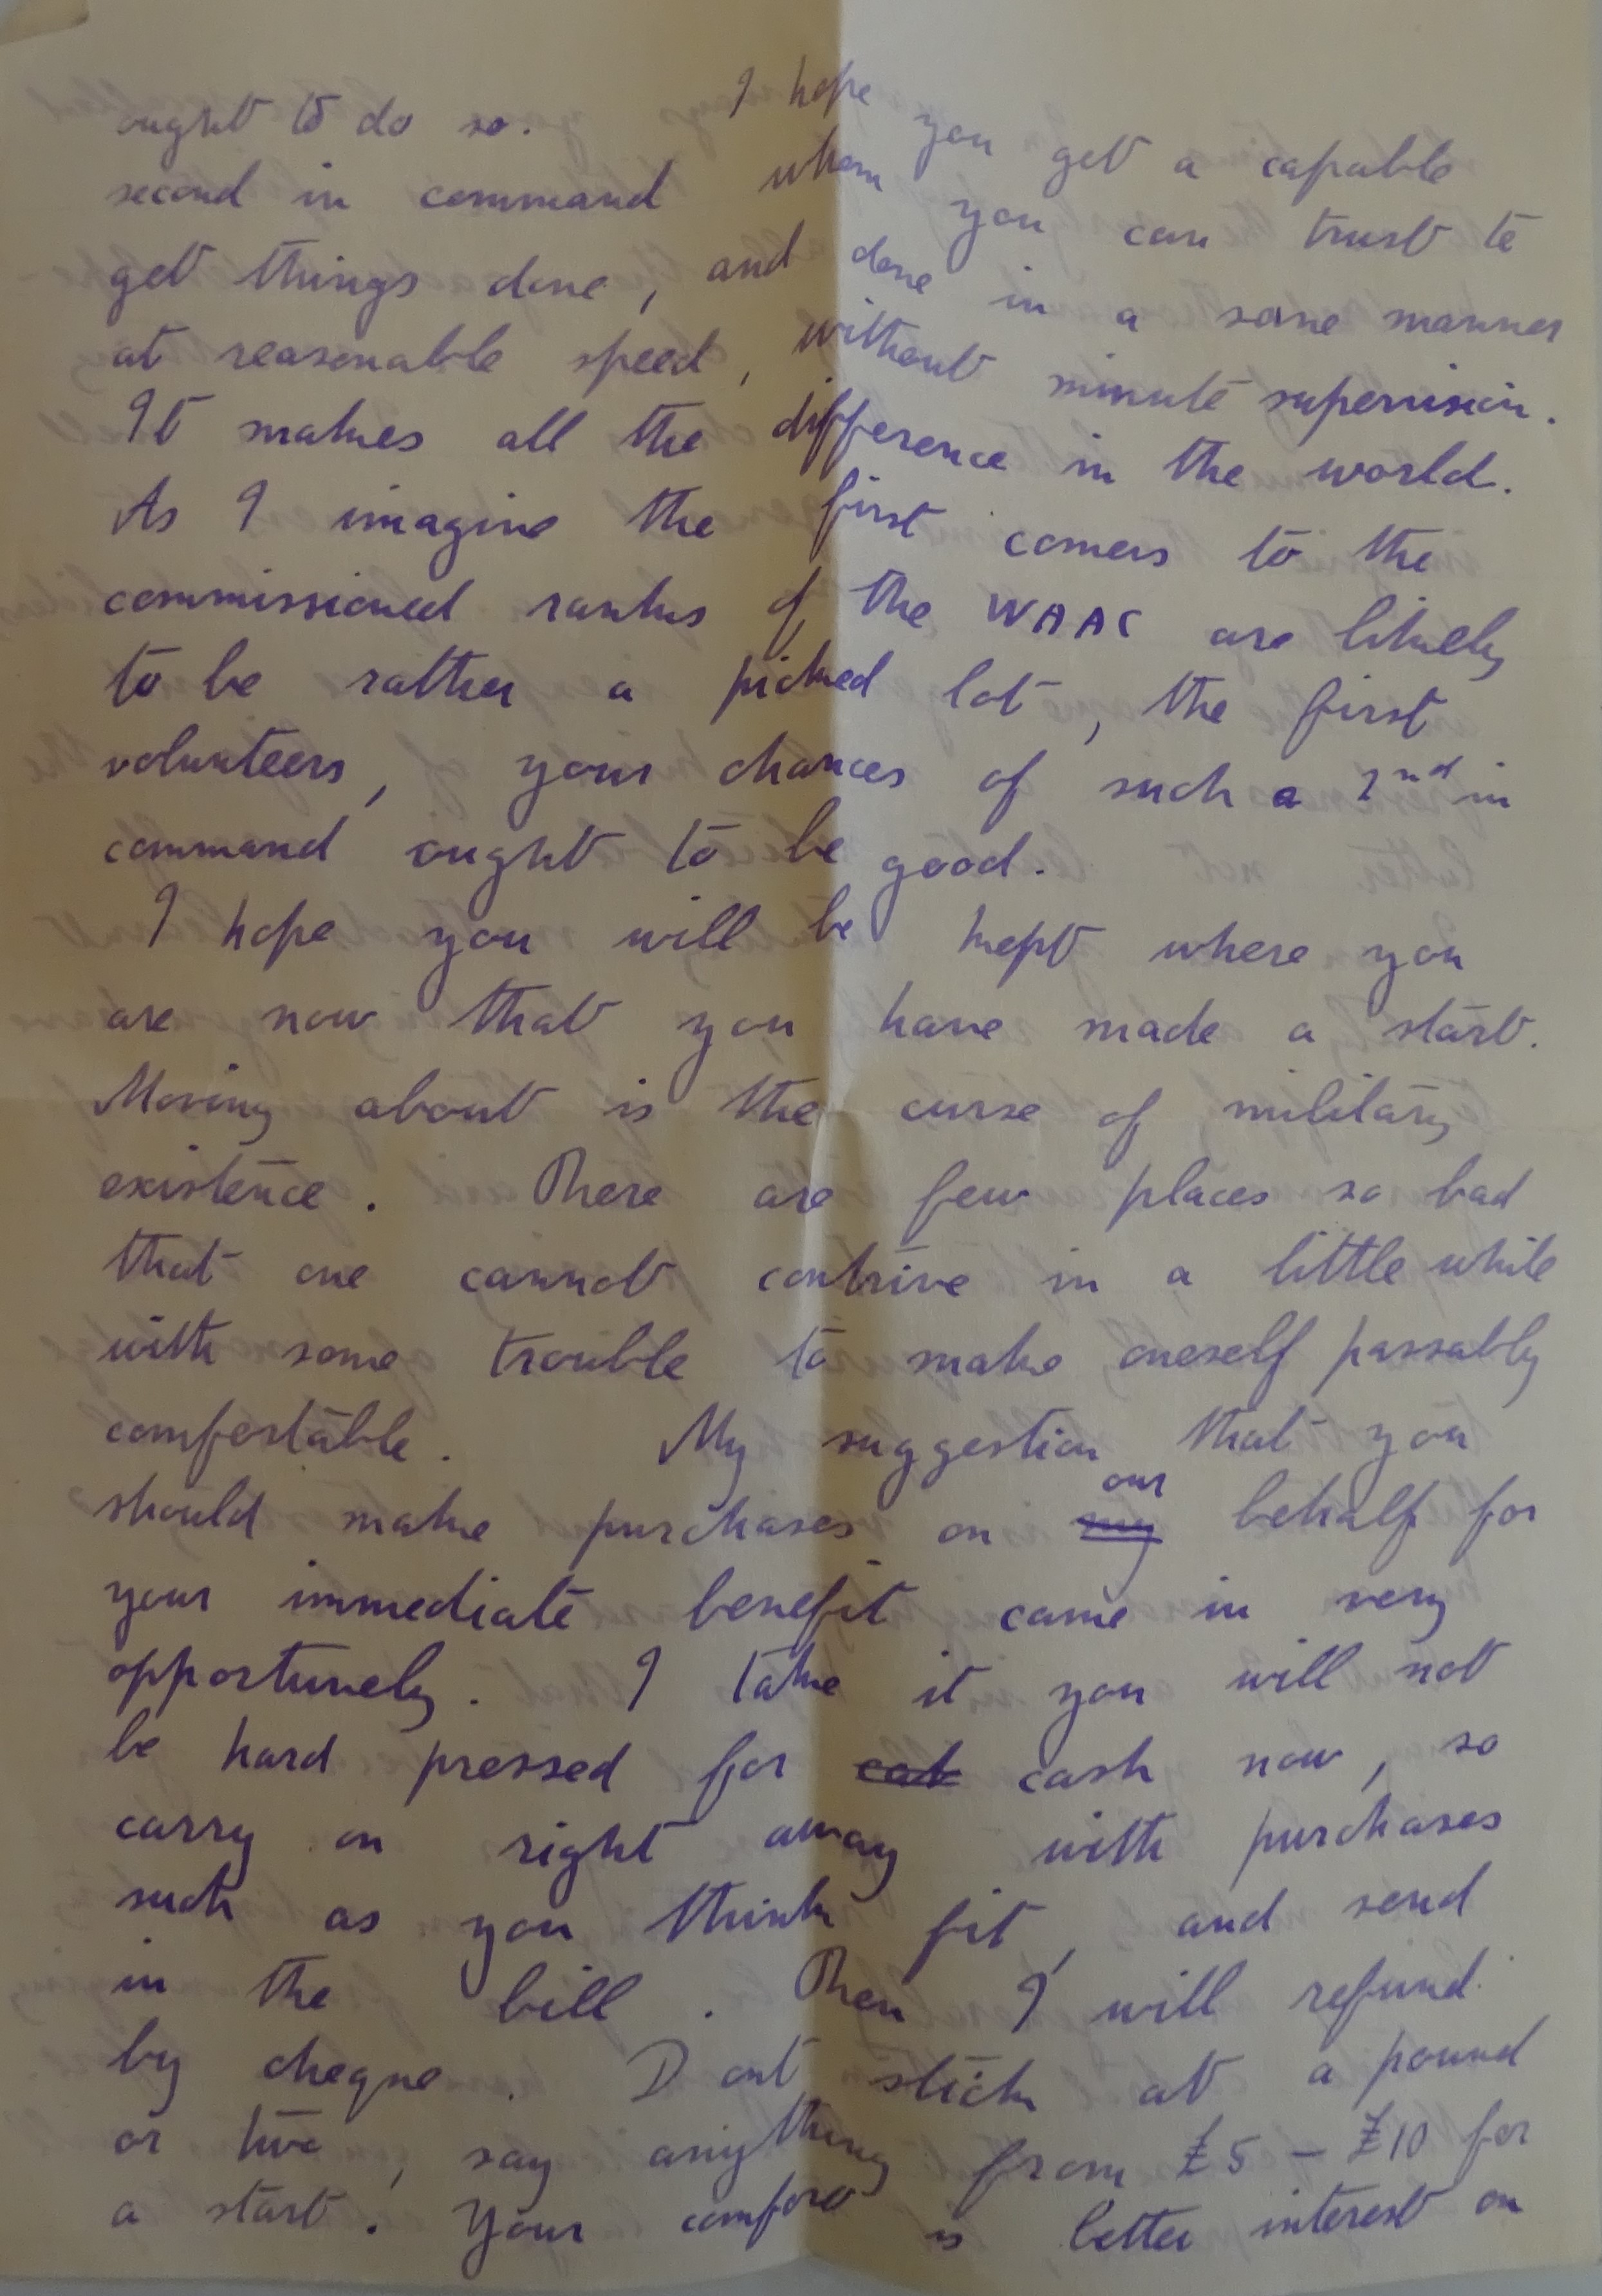 ought to do so. I hope you get a capable
second in command whom you can trust to
get things done, and done in a sane manner
at reasonable speed, without minute supervision.
It makes all the difference in the world.
As I imagine the first comers to the
commissioned ranks of the WAAC are likely
to be rather a picked lot, the first
volunteers, your chances of such a 2nd in
command ought to be good.
I hope you will be kept where you
are now that you have made a start.
Moving about is the curse of military
existence. There are few places so bad
that one cannot contrive in a little while
with some trouble to make oneself passably
comfortable. My suggestion that you
should make purchases on my our behalf for
your immediate benefit came in very
opportunely. I take it you will not
be hard pressed for cat cash now, so
carry on right away with purchases
such as you think fit, and send
in the bill. Then I will refund
by cheque. Dont stick at a pound
or two, say anything from £5 - £10 for
a start. Your comfort is better interest on